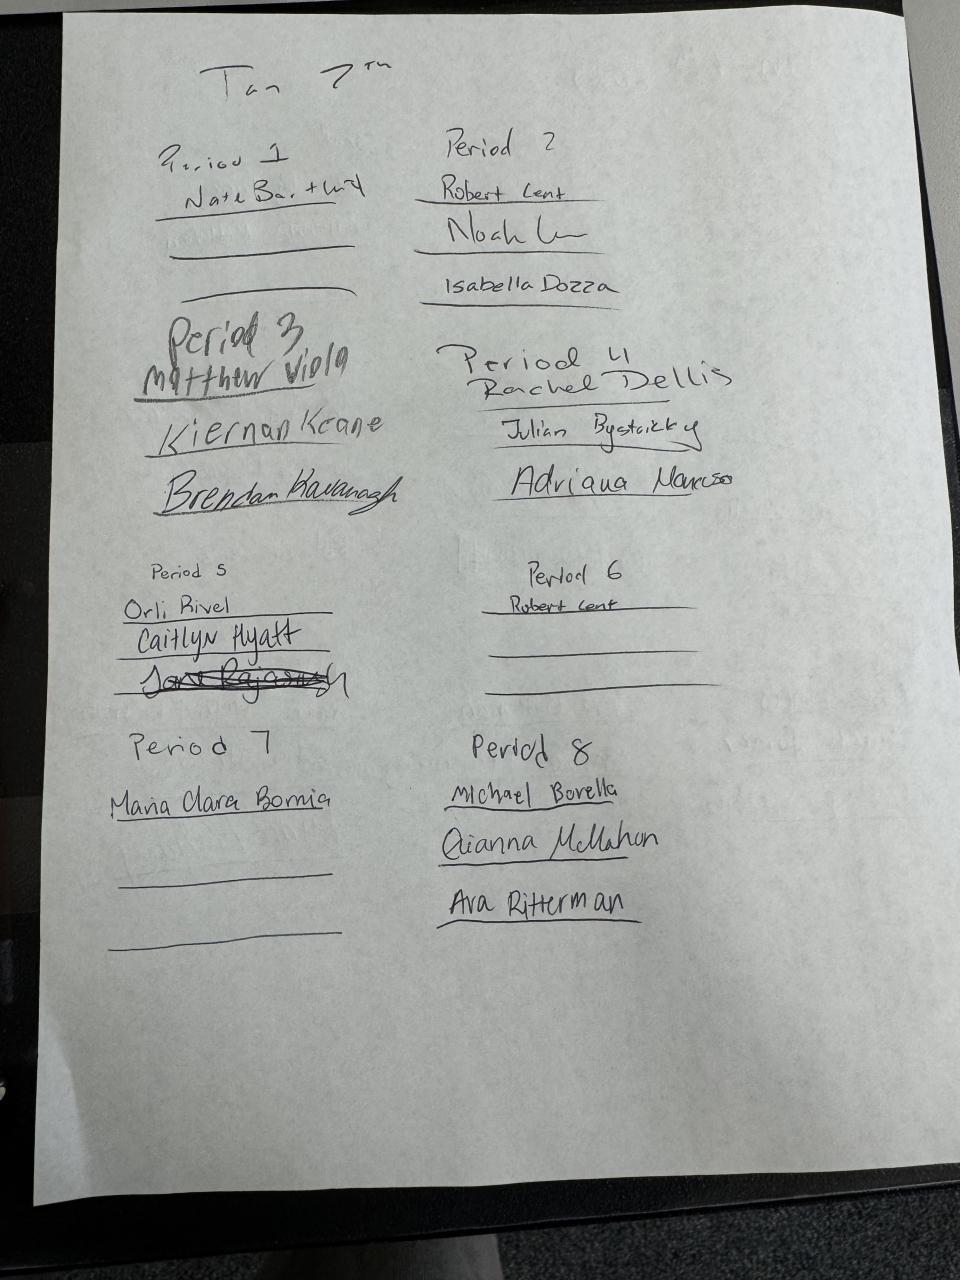 Jan 7th
Period 1
Nate
Period 2
Robert Lent
Noah
Isabella Dozza
Period 3
Matthew Viola
Kiernan Keane
Brendan Kavanagh
Period 4
Rachel Dellis
Julian Bystricky
Adriana Mancuso
Period 5
Orli Rivel
Caitlyn Hyatt
Period 6
Robert Lent
Period 7
Maria Clara Bornia
Period 8
Michael Borella
Qianna McMahon
Ava Ritterman